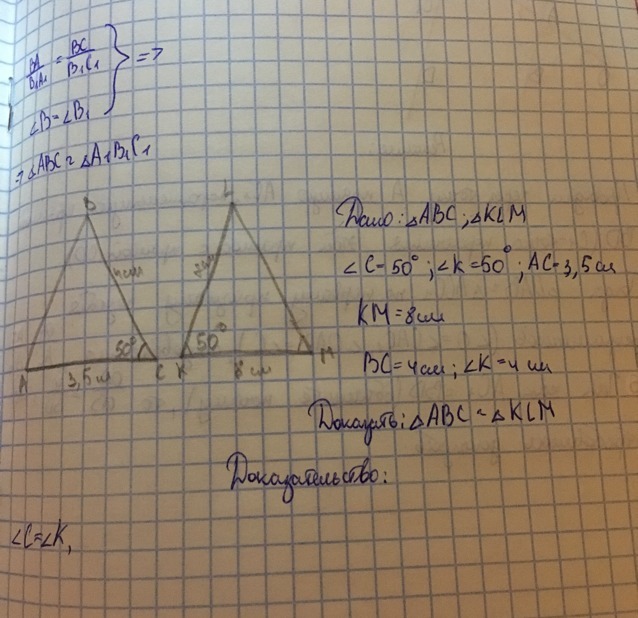 BA/B₁A₁ = BC/B₁C₁ } =>
∠B=∠B₁
=> △ABC ~ △A₁B₁C₁
B L
4 см
50° 50°
A 3,5 см C K 8 см M
Дано: △ABC; △KLM
∠C=50°; ∠K=50°; AC=3,5 см
KM=8 см
BC=4 см; ∠K=4 см
Доказать: △ABC ~ △KLM
Доказательство:
∠C=∠K,